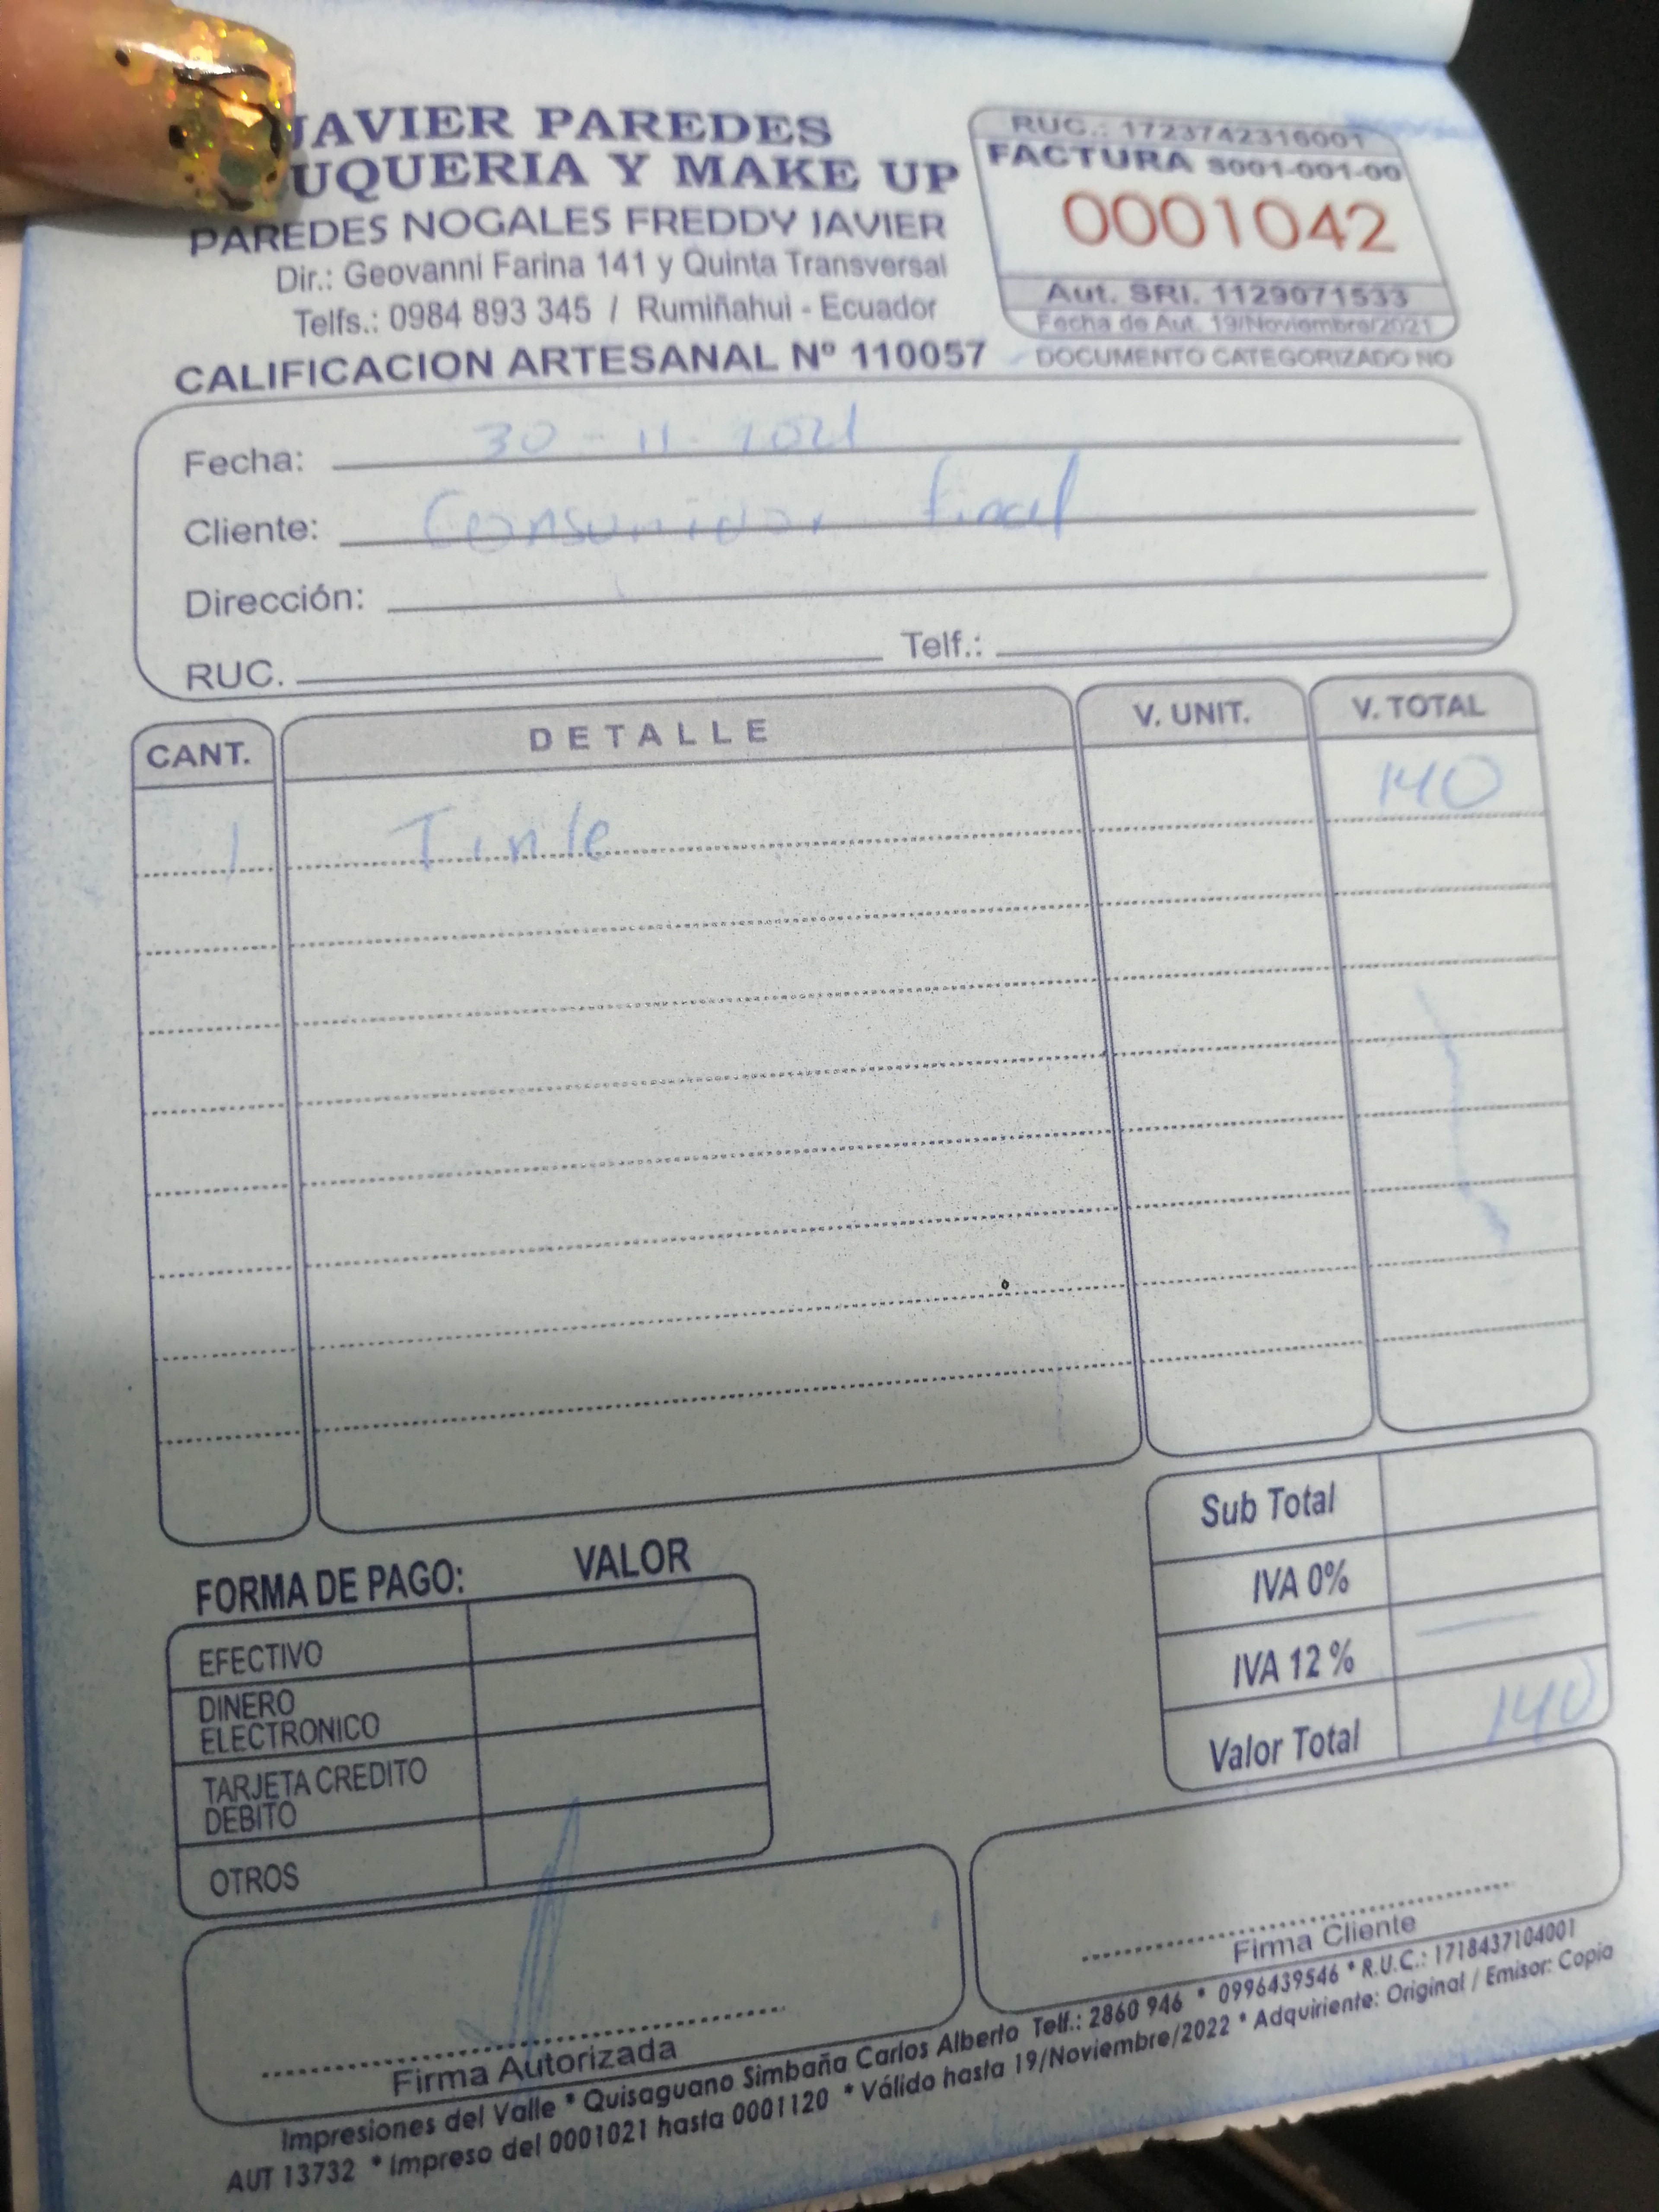 JAVIER PAREDES
UQUERIA Y MAKE UP
PAREDES NOGALES FREDDY JAVIER
Dir.: Geovanni Farina 141 y Quinta Transversal
Telfs.: 0984 893 345 / Rumiñahui - Ecuador
CALIFICACION ARTESANAL Nº 110057
RUC.: 1723742316001
FACTURA S001-001-00
0001042
Aut. SRI. 1129071533
Fecha de Aut. 19/Noviembre/2021
DOCUMENTO CATEGORIZADO NO
Fecha: 30 - 11 - 2021
Cliente: Consumidor final
Dirección:
RUC. Telf.:
CANT. DETALLE V. UNIT. V. TOTAL
1 Tinte 140
Sub Total
IVA 0%
IVA 12 %
Valor Total 140
FORMA DE PAGO: VALOR
EFECTIVO
DINERO
ELECTRONICO
TARJETA CREDITO
DEBITO
OTROS
Firma Autorizada
Firma Cliente
Impresiones del Valle * Quisaguano Simbaña Carlos Alberto Telf.: 2860 946 * 0996439546 * R.U.C.: 1718437104001
AUT 13732 * Impreso del 0001021 hasta 0001120 * Válido hasta 19/Noviembre/2022 * Adquiriente: Original / Emisor: Copia